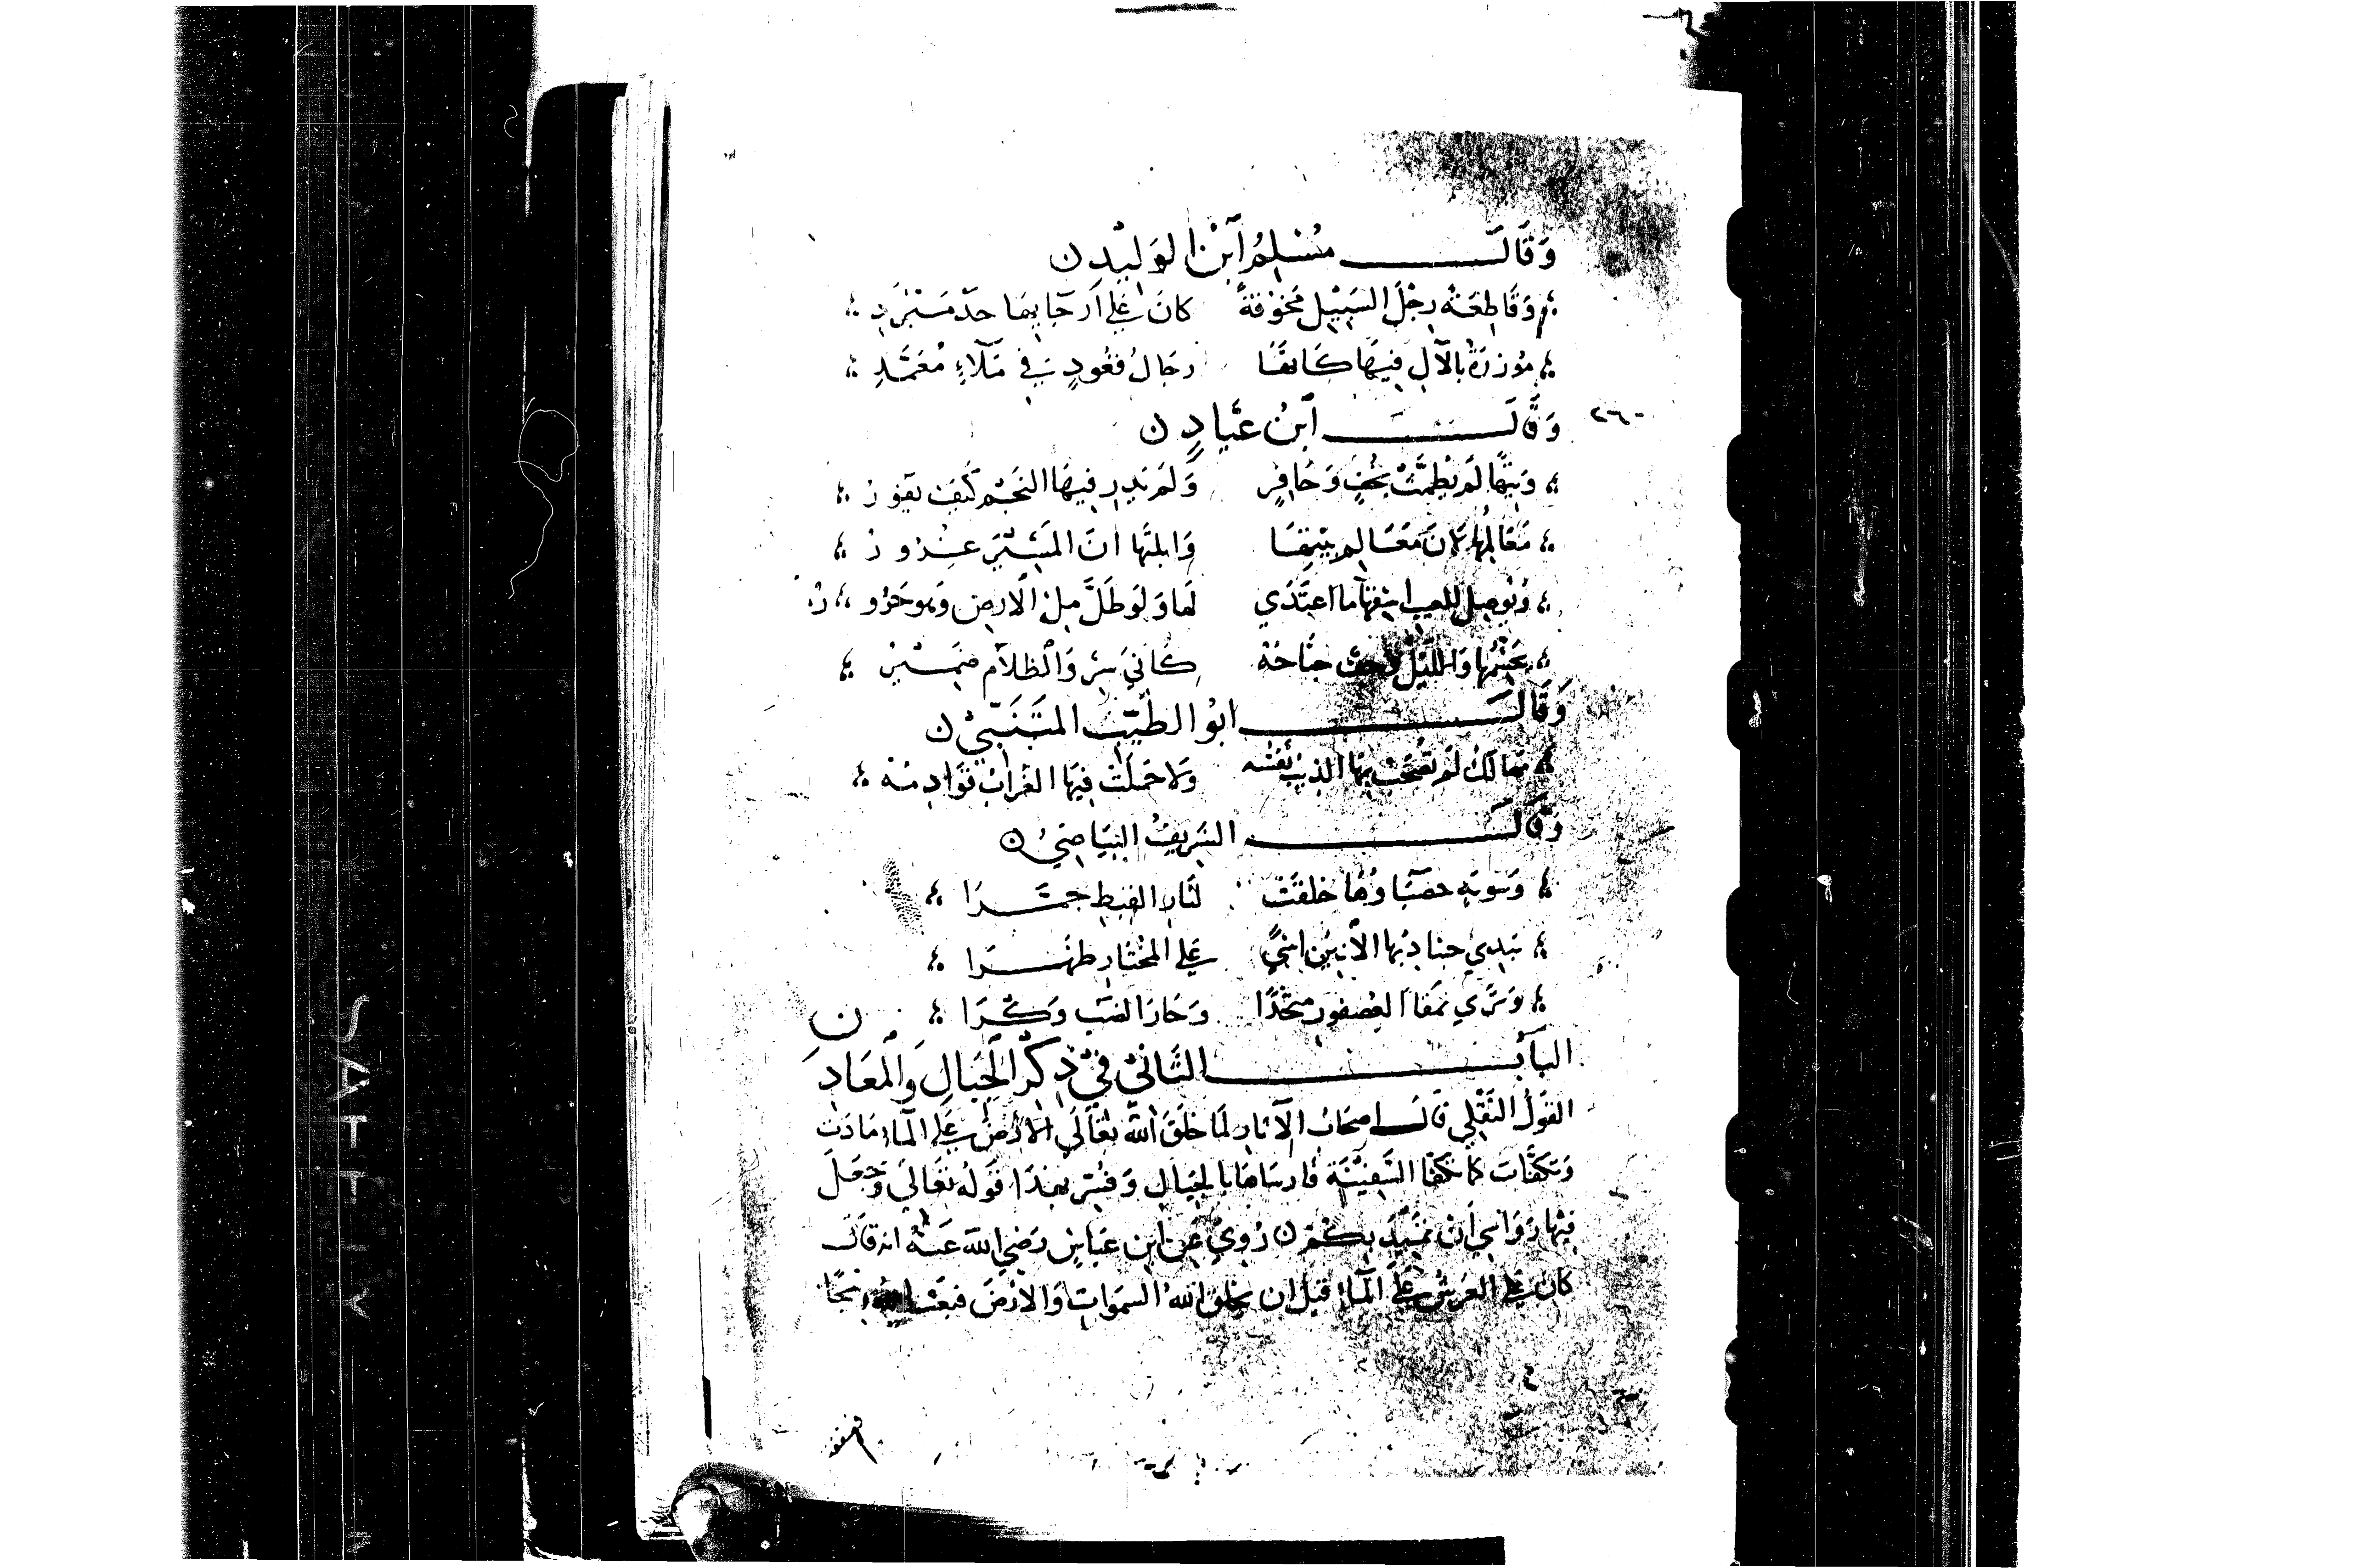 وَقَالَ مُسْلِمُ اَبْن الوَلِيْدِ ن
وَقَاطِعَة رِجْل السَبِيْل مَخُوْفَة كانَ عَلى اَرجَايهَا حدّ مبْرَدِ
مُوزرَة بالآلِ فِيهَا كَانهَا رجَالُ قعُودٍ في مَلآءٍ مُعَمَّدِ
٢٦٠
وَقَالَ اَبنُ عَبَّادٍ ن
وَتيهَا لَم تطمَث بخُفٍّ وَحَافِرٍ وَلَم يَدرِ فِيهَا النَجْم كَيْفَ يغورُ
مَعَالمُهَا اَن مَعَالِم بينهَا وَايَتها ان المَسِيْرَ غرُورُ
وَقَالَ ابُو الطيّب المتَنَبّيْ ن
مهَالك لَم تصْحَب بهَا الذيب نَفْسه وَلا حَملَت فِيهَا الغُراب قوَادِمُهْ
وَقَالَ الشريفُ البيَاضيُ ن
حصَبَاوُهَا خلقَتْ لنَار القيظِ جمْرَا
تبدي جنادبُها الأنِين على المُحْتَارِ ظهْرَا
وَتَرَي بهَا العُصفور متّخذًا وَجَارَ الضبّ وَكْرَا
البَابُ الثَانيْ فيْ ذِكْر الجِبَالِ وَالمعَادِن
القَولُ النَقْلي قَالَ اصحَابُ الآثارِ لمَا خَلَقَ الله تعَالَى الارضَ عَلى المآءِ مَادَت
وَتكَفَّاتْ كَمَا تتكَفَّا السَفِينَة فارسَاهَا بالجبَالِ وَفُسِّر بهذَا قَولُه تعَالَى وَجَعَلَ
فِيْهَا رَوَاسِي اَن تَمِيْدَ بِكُمْ ن رُوِيَ عَن ابن عَبَاسٍ رَضِي الله عَنهُ انه قَالَ
كان العَرشُ عَلى المآءِ قبْل ان يخلقَ اللهُ السموَاتِ وَالارْضَ فبعَثَ الله ريحًا